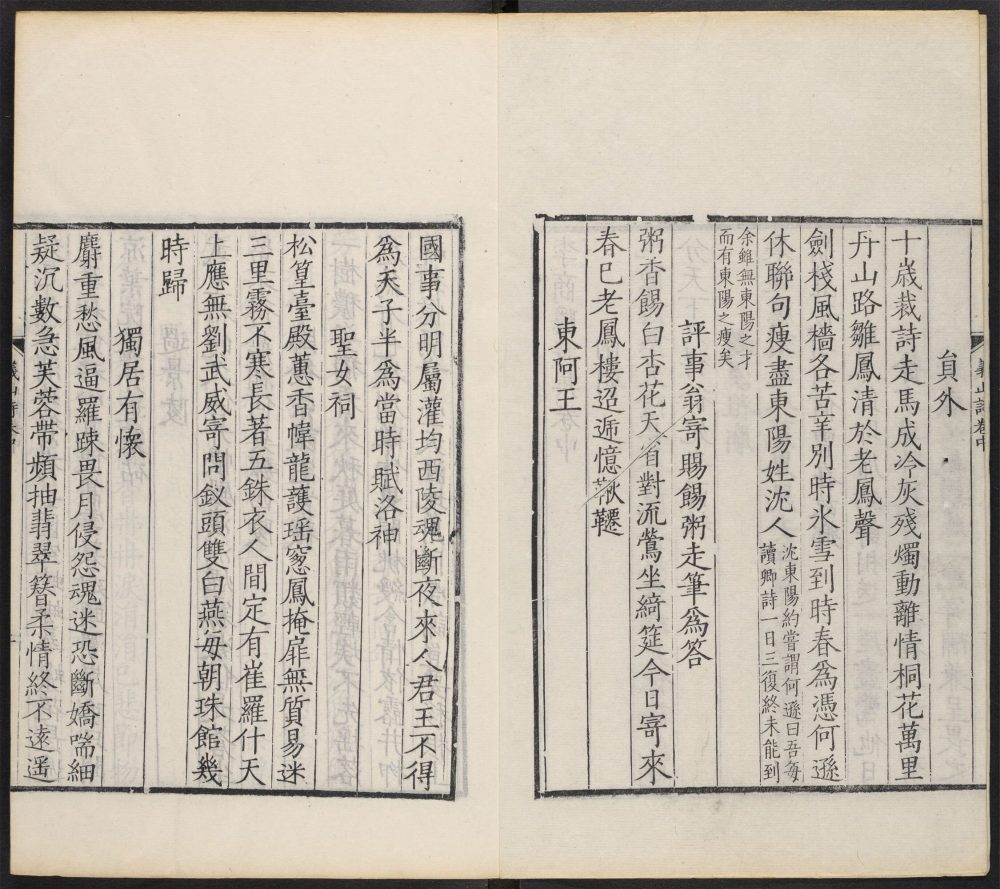 員外
十歲裁詩走馬成冷灰殘燭動離情桐花萬里
丹山路雛鳳清於老鳳聲
劍棧風檣各苦辛別時氷雪到時春為憑何遜
休聯句瘦盡東陽姓沈人
沈東陽約嘗謂何遜曰吾每
讀卿詩一日三復終未能到
余雖無東陽之才
而有東陽之瘦矣
評事翁寄賜餳粥走筆為答
粥香餳白杏花天省對流鶯坐綺筵今日寄來
春已老鳳樓迢遞憶鞦韆
東阿王
國事分明屬灌均西陵魂斷夜來人君王不得
為天子半為當時賦洛神
聖女祠
松篁臺殿蕙香幃龍護瑶窓鳳掩扉無質易迷
三里霧不寒長著五銖衣人間定有崔羅什天
上應無劉武威寄問釵頭雙白燕每朝珠館幾
時歸
獨居有懷
麝重愁風逼羅踈畏月侵怨魂迷恐斷嬌喘細
疑沉數急芙蓉帶頻抽翡翠簪柔情終不遠遥
義山詩卷中